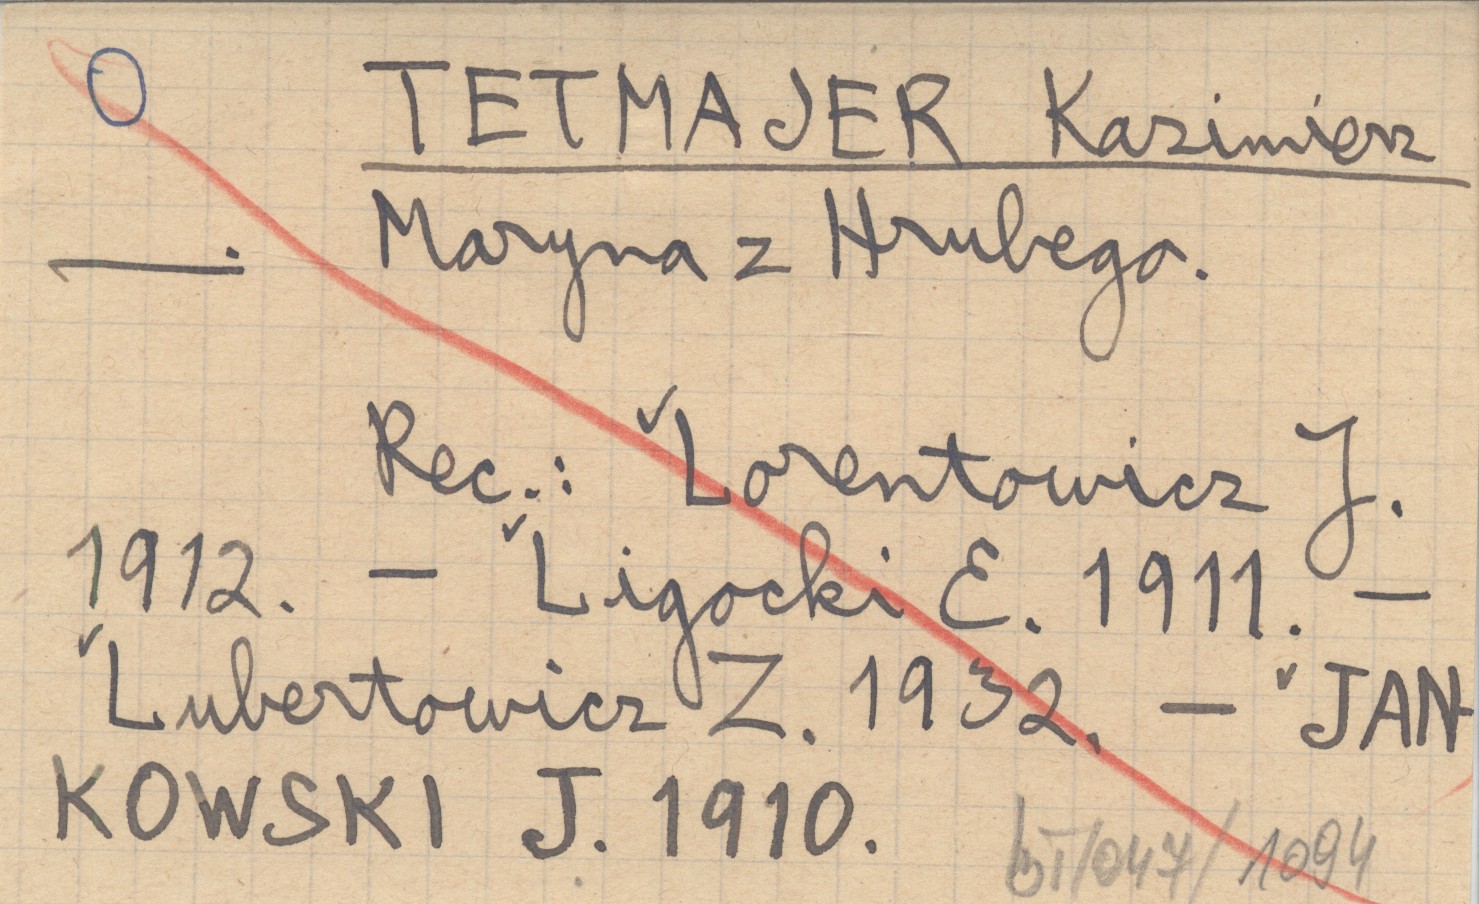 TETMAJER Kazimierz
—. Maryna z Hrubego.
Rec.: Lorentowicz J.
1912. — Ligocki E. 1911. —
Lubertowicz Z. 1932. — JAN-
KOWSKI J. 1910.
/047/1094